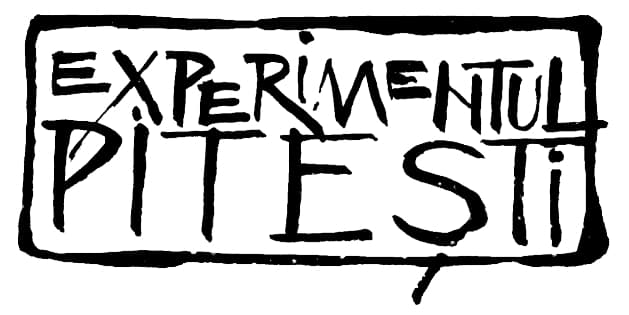 EXPERIMENTUL
PITEȘTi